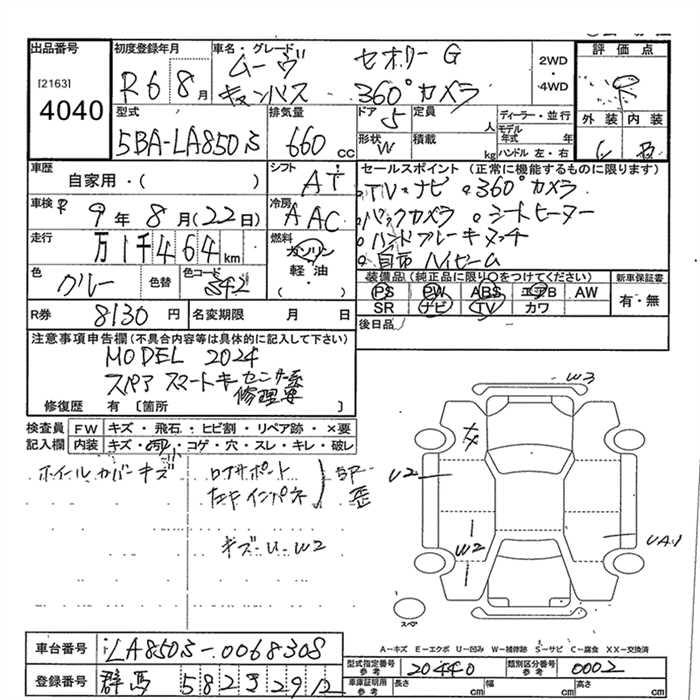 出品番号 初度登録年月 車名・グレード 評価点
[2163]
4040
R6 8月
ムーヴ セオリーG
キャンバス 360°カメラ
2WD
・
4WD
外装 内装
型式 排気量 ドア 定員 ディーラー・並行
5BA-LA850S 660 cc 5 人 モデル年式 年
形状 W 積載 kg ハンドル 左・右
車歴 シフト セールスポイント (正常に機能するものに限ります)
自家用・( ) AT
TV・ナビ 360°カメラ
車検 R9年8月(22日) 冷房 AAC
バックカメラ シートヒーター
走行 万1千464km 燃料 ガソリン
軽・油
・( )
ハイビーム
色 グレー 色替 色コード S42
装備品(純正品に限り○をつけてください) 新車保証書
PS PW ABS エアB AW 有・無
SR ナビ TV カワ
R券 8130円 名変期限 月 日 後日品
注意事項申告欄(不具合内容等は具体的に記入して下さい)
MODEL 2024
スペア スマートキー センサー系
修理要
修復歴 有 [箇所 ]
検査員 FW キズ・飛石・ヒビ割・リペア跡・×要
記入欄 内装 キズ・ コゲ・穴・スレ・キレ・破レ
ホイールカバーキズ ロアサポート
左右インパネ 歪
キズ・U・W2
W3
U2
W2
UA1
スペア
A-キズ E-エクボ U-凹み W-補修跡 S-サビ C-腐食 XX-交換済
車台番号 LA850S-0068308
型式指定番号 参考 20440 類別区分番号 参考 0002
登録番号 群馬 582
車庫証明用 参考 長さ cm 幅 cm 高さ cm